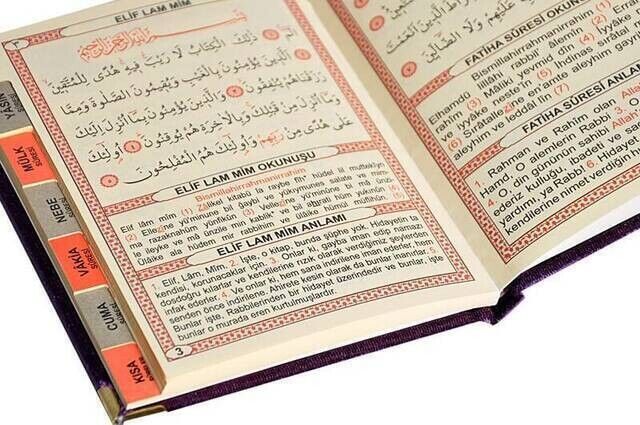 ELİF LAM MİM
٣
ذٰلِكَ الْكِتَابُ لَا رَيْبَ فِيهِ هُدًى لِلْمُتَّقِينَ
الَّذِينَ يُؤْمِنُونَ بِالْغَيْبِ وَيُقِيمُونَ الصَّلٰوةَ وَمِمَّا
رَزَقْنَاهُمْ يُنْفِقُونَ وَالَّذِينَ يُؤْمِنُونَ بِمَا أُنْزِلَ إِلَيْكَ
وَمَا أُنْزِلَ مِنْ قَبْلِكَ وَبِالْآخِرَةِ هُمْ يُوقِنُونَ أُولٰئِكَ
عَلٰى هُدًى مِنْ رَبِّهِمْ وَأُولٰئِكَ هُمُ الْمُفْلِحُونَ
ELİF LAM MİM OKUNUŞU
Bismillahirrahmanirrahim
Elif lâm mîm (1) Zâlikel kitabü lâ raybe fîh* hüdel lil müttekîyn
(2) Ellezîne yü'minune bil ğaybi ve yükıymunes salate ve mim-
ma razaknahüm yünfikun (3) Vellezîne yü'minune bi mâ ünzi-
le ileyke ve mâ ünzile min kablik* ve bil âhırati hüm yukınun (4)
Ülâike alâ hüdem mir rabbihim ve ülâike hümül müflihun (5)
ELİF LAM MİM ANLAMI
1. Elif, Lâm, Mîm. 2. İşte, o kitap, bunda şüphe yok. Hidayetin ta
kendisi, korunacaklar için. 3. Onlar ki, gayba iman edip namazı
dosdoğru kılarlar ve kendilerine rızık olarak verdiğimiz şeylerden
infak ederler. 4. Ve onlar ki, hem sana indirilene iman ederler, hem
senden önce indirilene. Ahirete kesin olarak da bunlar inanırlar.
Bunlar işte, Rabbilerinden bir hidayet üzerindedir ve bunlar, işte
bunlar o murada eren kurtulmuşlardır.
3
YÂSİN
SÛRESİ
MÜLK
SÛRESİ
NEBE
SÛRESİ
VÂKIA
SÛRESİ
CUMA
KISA
عَلَيْهِمْ وَلَا الضَّالِّينَ
FATİHA SÛRESİ OKUNU
Bismillahirrahmanirrahim (1)
Elhamdü lillâhi rabbil' âlemîn (2)
(3) Mâliki yevmid dîn (4) İyyâ
ve iyyâke neste'în (5) İhdinas sırâtal
(6) Sırâtallezîne en'amte aleyhim gayri
aleyhim ve leddâl lîn (7)
FATİHA SÛRESİ ANLA
Rahman ve Rahîm olan Alla
Hamd, O âlemlerin Rabbi 3.
4. O din gününün sahibi Alla
ederiz kulluğu, ibadeti ve sa
yardımı, ya Rab! 6. Hidayet
kendilerine nimet verdiğin